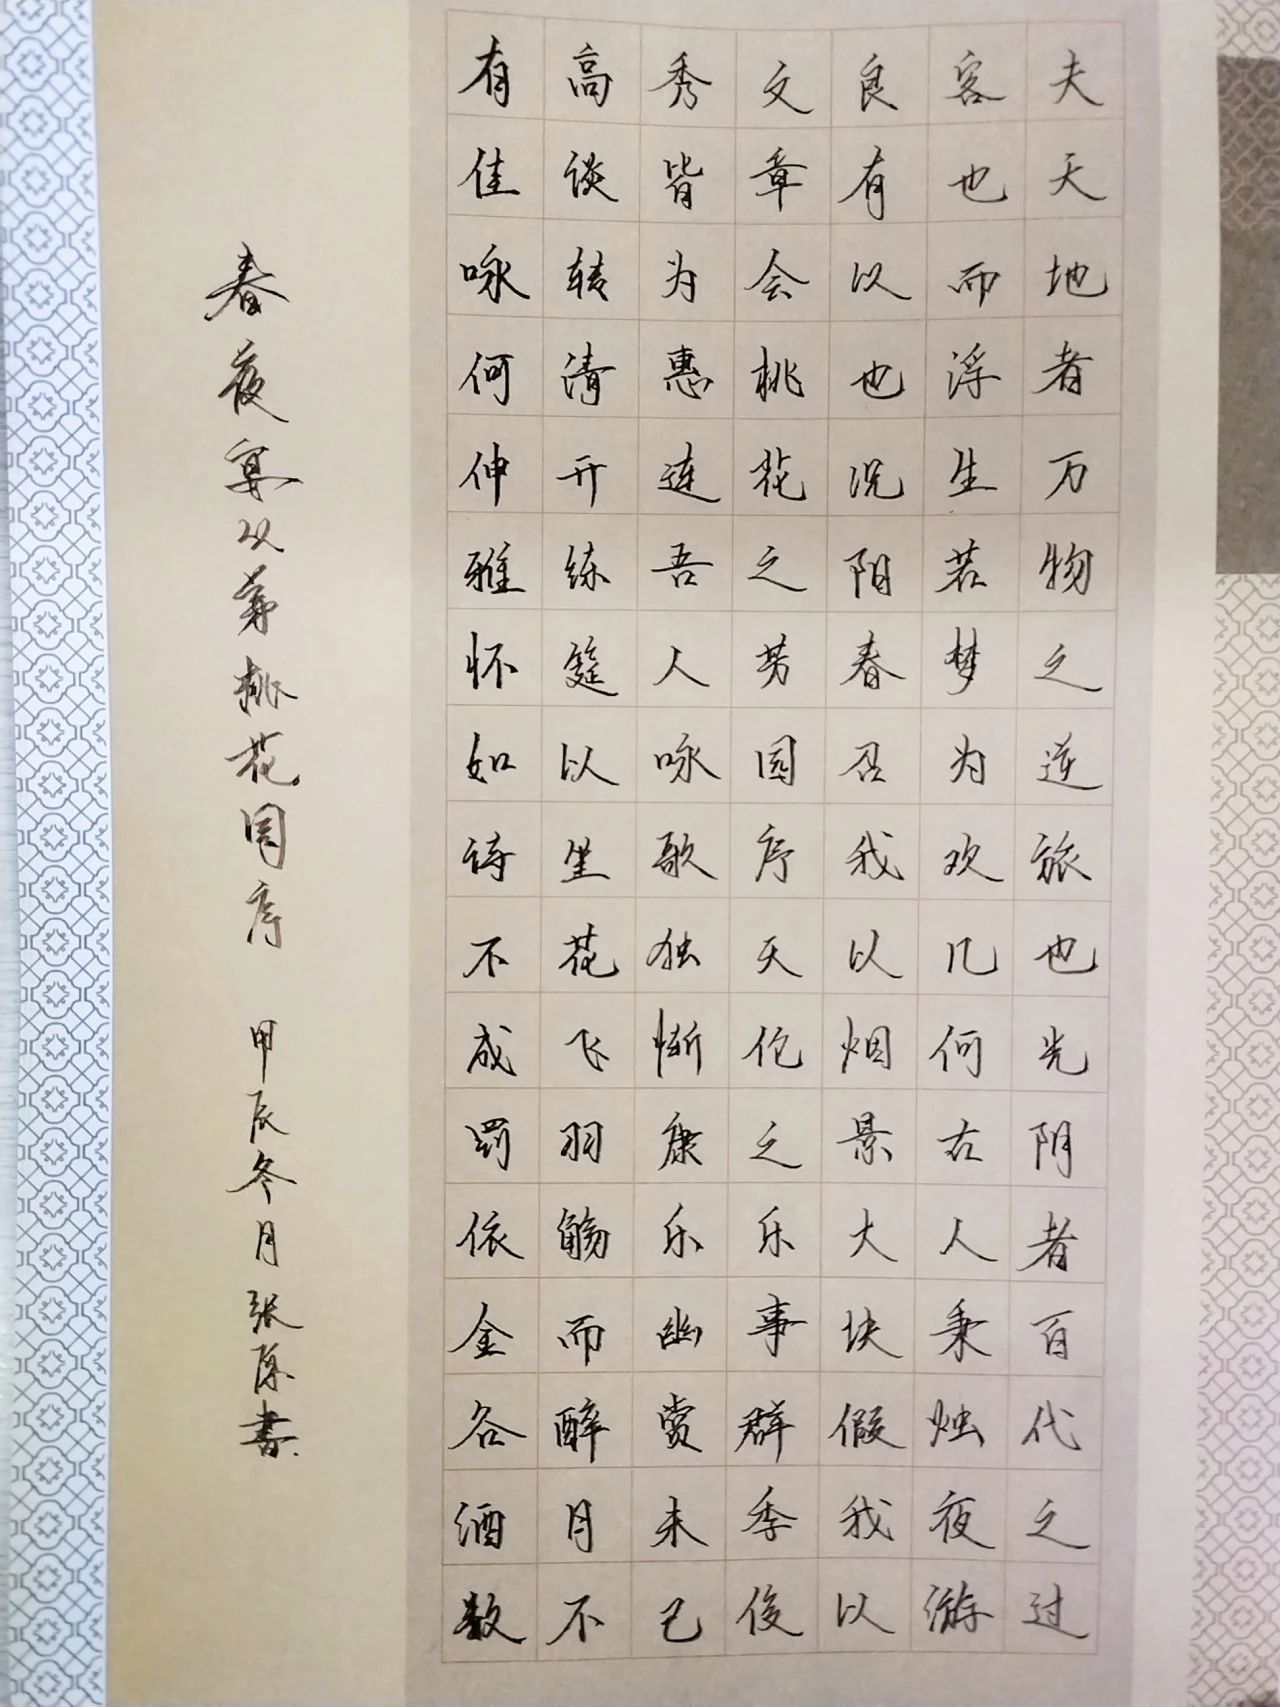 夫天地者万物之逆旅也光阴者百代之过
客也而浮生若梦为欢几何古人秉烛夜游
良有以也况阳春召我以烟景大块假我以
文章会桃花之芳园序天伦之乐事群季俊
秀皆为惠连吾人咏歌独惭康乐幽赏未已
高谈转清开练筵以坐花飞羽觞而醉月不
有佳咏何伸雅怀如诗不成罚依金谷酒数
春夜宴从弟桃花园序 甲辰冬月张书